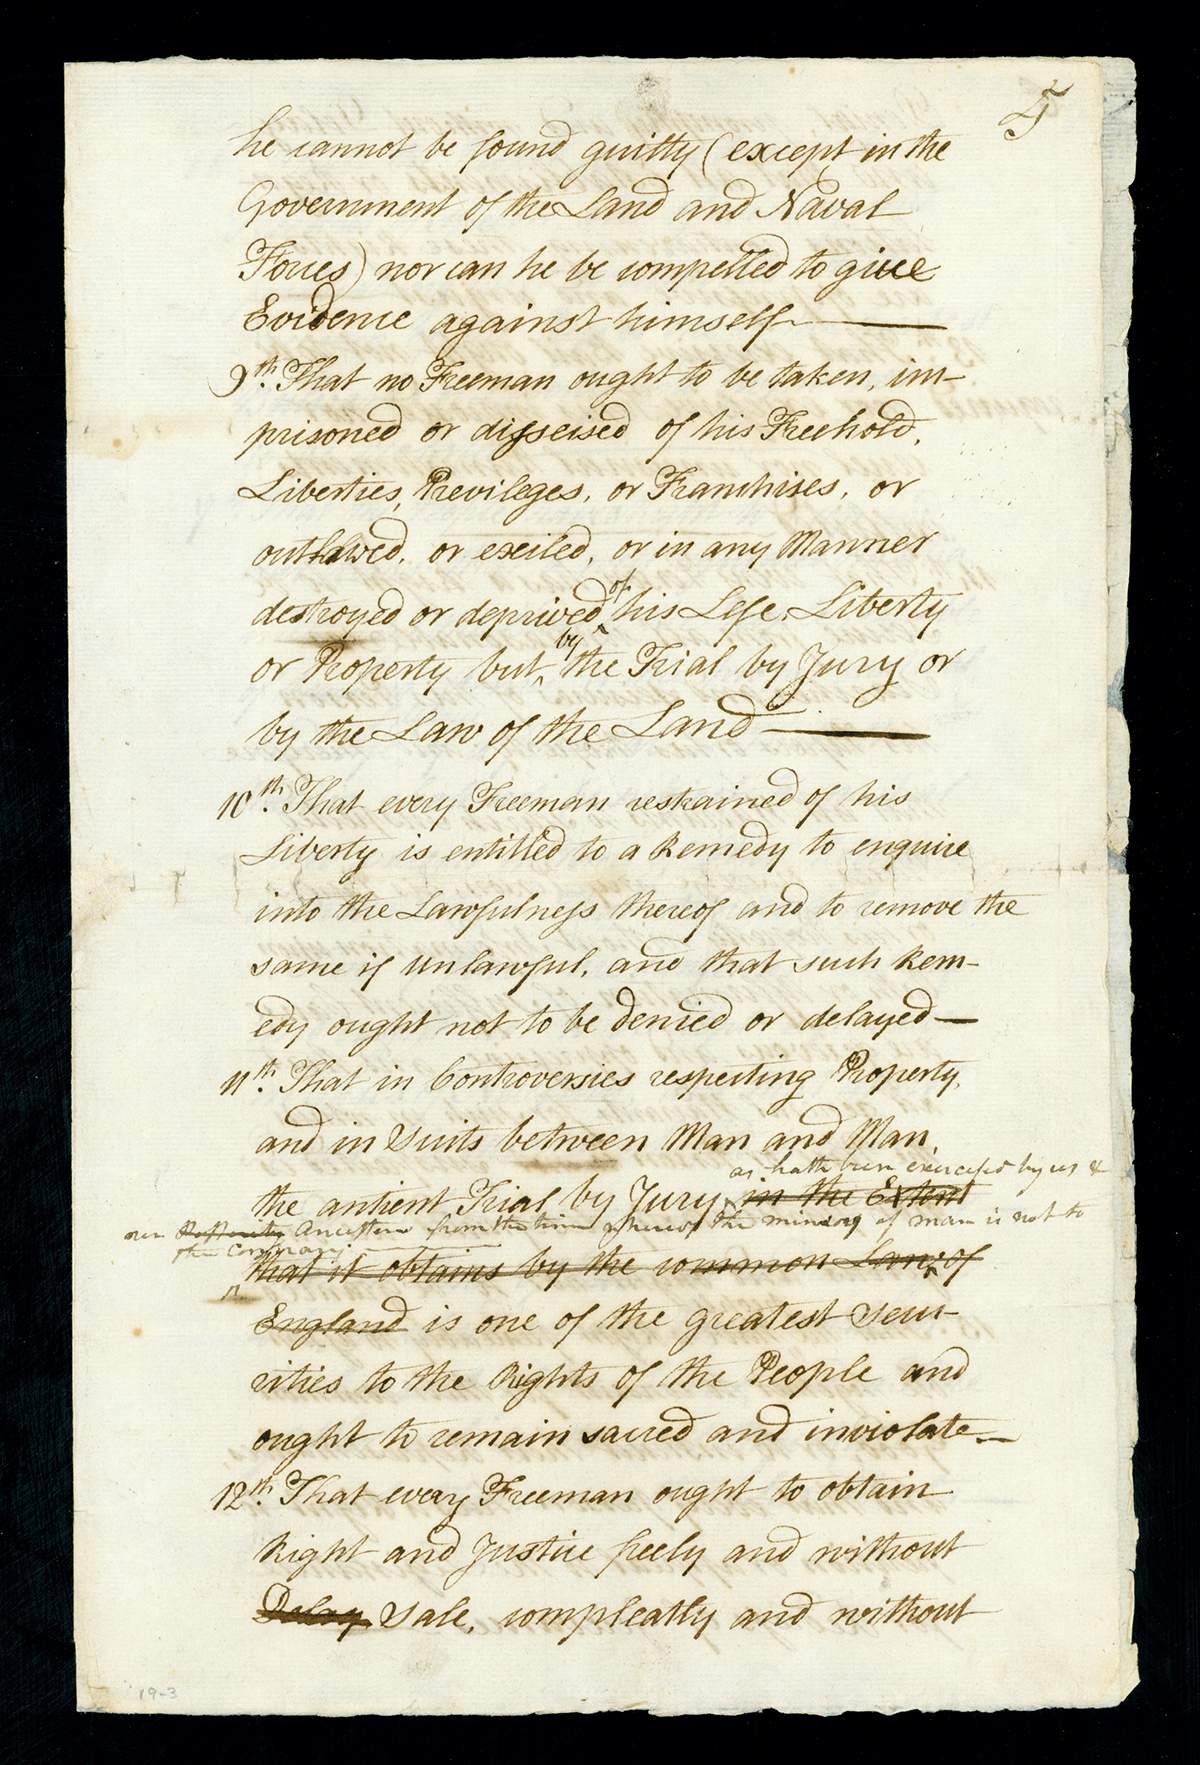 5
he cannot be found guilty (except in the
Government of the Land and Naval
Forces) nor can he be compelled to give
Evidence against himself
9th. That no Freeman ought to be taken, im-
prisoned or disseised of his Freehold,
Liberties, Previleges, or Franchises, or
outlawed, or exiled, or in any Manner
of
destroyed or deprived his Life, Liberty
by
or Property but the Trial by Jury or
by the Law of the Land
10th. That every Freeman restrained of his
Liberty is entitled to a Remedy to enquire
into the Lawfulness thereof and to remove the
same if unlawful, and that such Rem-
edy ought not to be denied or delayed
11th. That in Controversies respecting Property,
and in Suits between Man and Man,
as hath been exercised by us &
the antient Trial by Jury in the Extent
our Ancestors from the time whereof the memory of man is not to
the Contrary
that it obtains by the common Law of
England is one of the greatest Secu-
rities to the Rights of the People and
ought to remain sacred and inviolate
12th. That every Freeman ought to obtain
Right and Justice freely and without
Delay Sale, compleatly and without
19-3